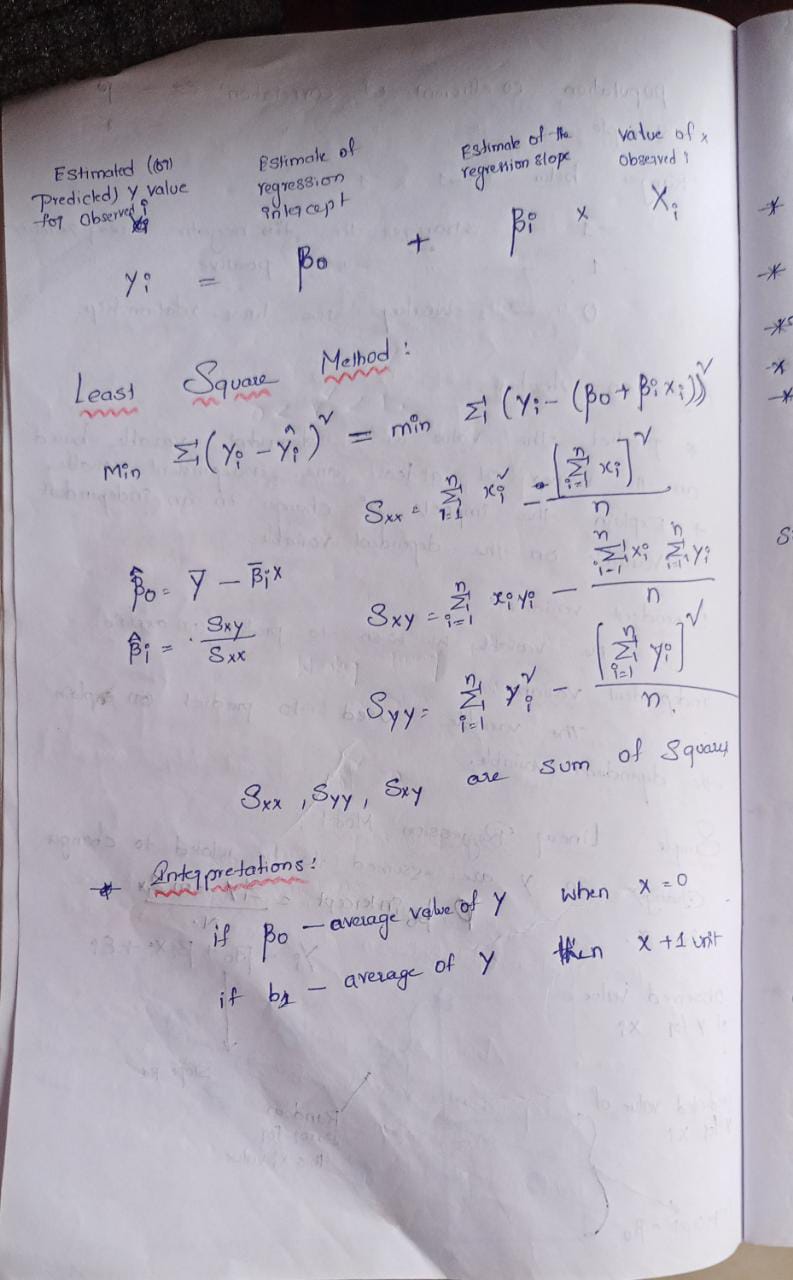 Estimated (or) Predicted) Y value for Observed i
Estimate of regression intercept
Estimate of the regression slope
value of x Observed i
Yi = β0 + βi x Xi
Least Square Method :
Min Σ(Yi - Ŷi)² = min Σ(Yi - (β0 + βi xi))²
Sxx = Σ_{i=1}^{n} xi² - [Σ_{i=1}^{n} xi]² / n
β̂0 = Y̅ - β̅i x
Sxy = Σ_{i=1}^{n} xi yi - Σ_{i=1}^{n} xi Σ_{i=1}^{n} yi / n
β̂i = Sxy / Sxx
Syy = Σ_{i=1}^{n} Yi² - [Σ_{i=1}^{n} yi]² / n.
Sxx , Syy , Sxy are sum of Squares
* Interpretations :
if β0 – average value of Y when x = 0
if b1 – average of Y then x +1 unit